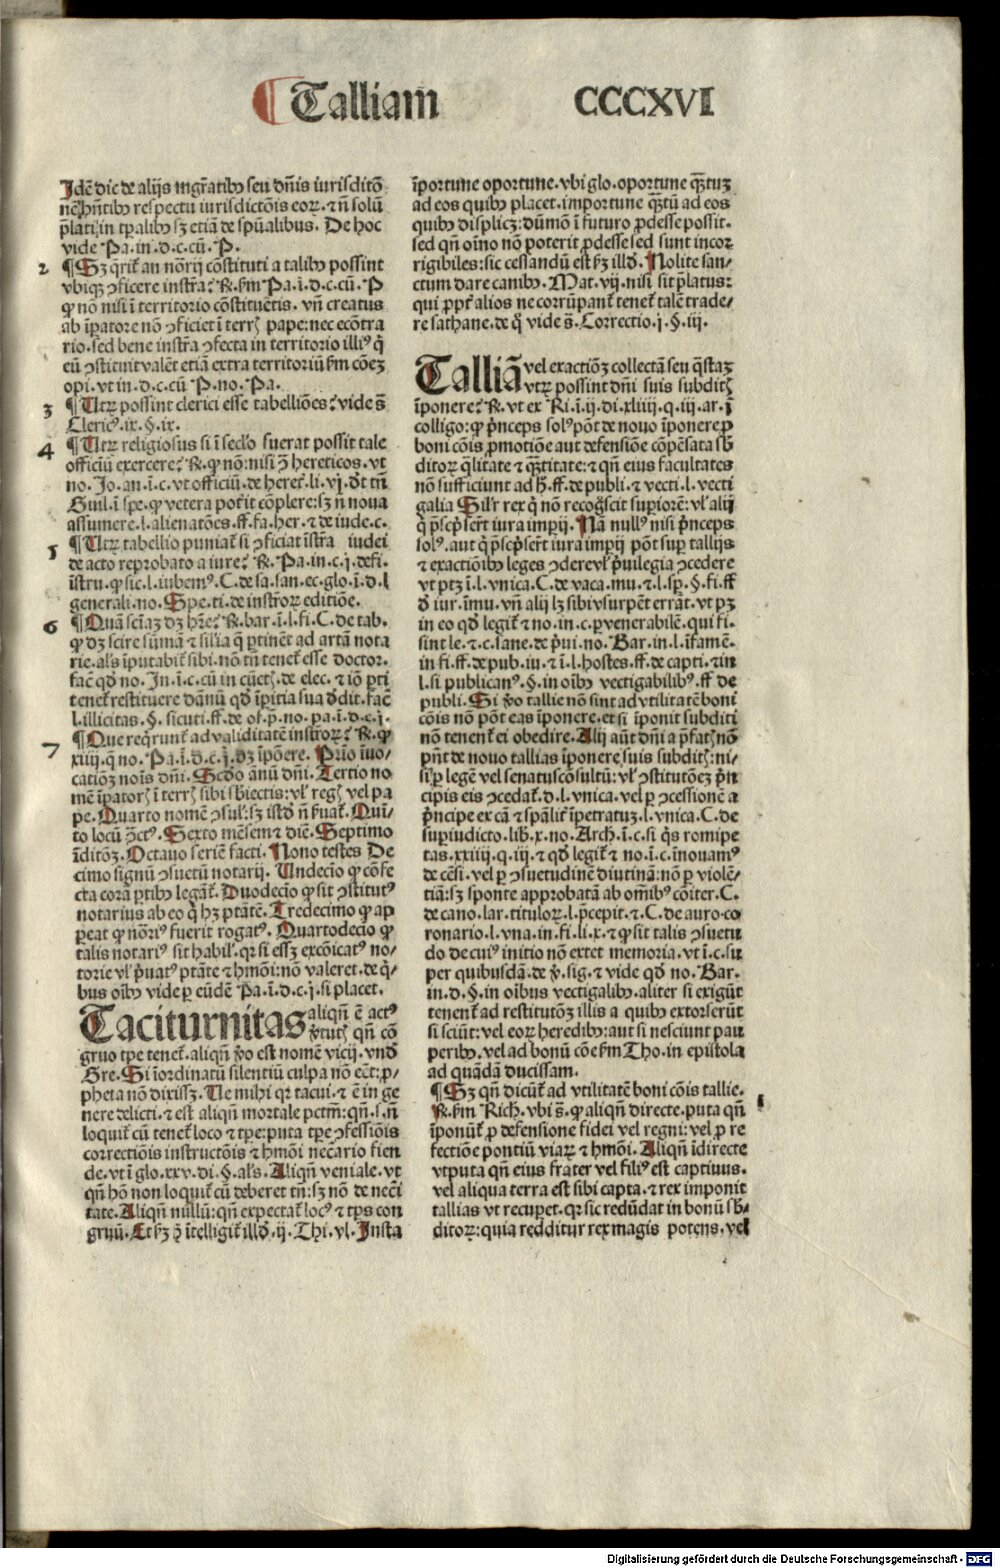 ¶ Talliam CCCXVI
Idē dic de alijs mgr̄atibꝰ seu dn̄is iurisditō
nē hn̄tibꝰ respectu iurisdictōis eoꝝ. ⁊ n̄ solū
p̄lati, in tꝑalibꝰ sꝫ etiā de spūalibus. De hoc
vide Pa. in. d. c. cū. P.
2. ¶ Sꝫ q̄rit᷑ an nōrij cōstituti a talibꝰ possint
vbiqꝫ ꝯficere instr̄a? R̄. ẜm Pa. ī. d. c. cū. P
ꝙ nō nisi ī territorio cōstituētis. vn̄ creatus
ab īꝑatore nō ꝯficiet ī terrꝭ pape: nec ecōtra
rio. sed bene instr̄a ꝯfecta in territorio illiꝰ q̄
eū ꝯstituit valēt etiā extra territoriū ẜm cōeꝫ
opi. vt in. d. c. cū P. no. Pa.
3 ¶ Utꝝ possint clerici esse tabelliōes? vide s̄
Clericꝰ. ix. §. ix.
4 ¶ Utꝝ religiosus si ī sec̄lo fuerat possit tale
officiū exercere? R̄. ꝙ nō: nisi ꝯ̄ hereticos. vt
no. Jo. an. ī. c. vt officiū. de heret᷑. li. vj. d̄t tn̄
Guil. ī spe. ꝙ vetera pot̄it cōplere: sꝫ n̄ noua
assumere. l. alienatōes. ff. fa. her. ⁊ de iude. c.
5 ¶ Utꝝ tabellio puniat᷑ si ꝯficiat īstr̄a iudei
de acto reprobato a iure? R̄. Pa. in. c. j. de fi.
īstru. ꝙ sic. l. iubemꝰ. C. de sa. san. ec. glo. ī. d. l
generali. no. Spe. ti. de instroꝝ editiōe.
6 ¶ Quā sciaꝫ dꝫ hr̄e? R̄. bar. ī. l. fi. C. de tab.
ꝙ dꝫ scire sūmā ⁊ silia q̄ ꝑtinēt ad artā nota
rie. als īputabit᷑ sibi. nō tn̄ tenet᷑ esse doctor.
fac̄ qd̄ no. In. ī. c. cū in cūctꝭ. de elec. ⁊ iō ꝑti
tenet᷑ restituere dānū qd̄ īꝑitia sua d̄dit. fac̄
l. illicitas. §. sicuti. ff. de of. p̄. no. pa. ī. d. c. j.
7 ¶ Que reqrunt᷑ ad validitatē instroꝝ? R̄. ꝙ
xiiij. q̄ no. Pa. ī. d. c. j. dꝫ īpōere. Prio īuo⸗
catiōꝫ noīs dn̄i. Scd̄o ānū dn̄i. Tertio no
mē īꝑatorꝭ ī terrꝭ sibi sb̄iectis: vl̓ regꝭ vel pa
pe. Quarto nomē ꝯsul: sꝫ istd̄ n̄ ẜuat᷑. Quī⸗
to locū ꝯ̄ctꝰ. Sexto mēsem ⁊ diē. Septimo
īditōꝫ. Octauo seriē facti. Nono testes De
cimo signū ꝯsuetū notarij. Undecīo ꝙ cōfe
cta corā ꝑtibꝰ legāt᷑. Duodecīo ꝙ sit ꝯstitutꝰ
notarius ab eo q̄ hꝫ ptātē. Tredecimo ꝙ ap
pareat ꝙ nōriꝰ fuerit rogatꝰ. Quartodecīo ꝙ
talis notariꝰ sit habil̓. qr si essꝫ excōicatꝰ no⸗
torie vl̓ p̄uatꝰ ptāte ⁊ hmōi: nō valeret. de q̄⸗
bus oībꝰ vide ꝑ eūdē Pa. ī. d. c. j. si placet.
Taciturnitas aliqn̄ ē actꝰ
v̄tutꝭ qn̄ cō
gruo tꝑe tenet᷑. aliqn̄ v̄o est nomē vicij. vnd̄
Gre. Si īordinatū silentiū culpa nō eēt: ꝓ⸗
pheta nō dixissꝫ. Ve mihi qr tacui. ⁊ ē in ge
nere delicti. ⁊ est aliqn̄ mortale pctm̄: qn̄. s. n̄
loquit᷑ cū tenet᷑ loco ⁊ tꝑe: puta tꝑe ꝯfessiōis
correctiōis instructōis ⁊ hmōi nec̄ario fien
de. vt ī glo. xxv. di. §. als. Aliqn̄ veniale. vt
qn̄ hō non loquit᷑ cū deberet tn̄: sꝫ nō de nec̄i
tate. Aliqn̄ nullū: qn̄ expectat᷑ locꝰ ⁊ tꝑs con
gruū. Et ẜꝫ ꝯ̄ ītelligit᷑ illd̄. ij. Thi. vl̓. Insta
īportune oportune. vbi glo. oportune q̄ꝫtuꝫ
ad eos quibꝰ placet. importune q̄ꝫtū ad eos
quibꝰ displicꝫ: dūmō ī futuro ꝓdesse possit.
sed qn̄ oīno nō poterit ꝓdesse sed sunt incor
rigibiles: sic cessandū est ẜꝫ illd̄. Nolite san⸗
ctum dare canibꝰ. Mat. vij. nisi sit p̄latus:
qui ꝓpt᷑ alios ne corrūpant᷑ tenet᷑ talē trade⸗
re sathane. de q̄ vide s̄. Correctio. j. §. iij.
Talliā vel exactiōꝫ collectā seu q̄staꝫ
vtꝝ possint dn̄i suis subditꝭ
īponere? R̄. vt ex Ri. ī. ij. di. xliiij. q. iij. ar. j
colligo: ꝙ p̄nceps solꝰ pōt de nouo īponere ꝓ
boni cōis ꝓmotiōe aut defensiōe cōpēsata sb̄
ditoꝝ q̄litate ⁊ q̄ꝫtitate: ⁊ qn̄ eius facultates
nō sufficiunt ad h̄. ff. de publi. ⁊ vecti. l. vecti
galia Sil̓r rex q̄ nō recog̅scit suꝑiorē: vl̓ alij
q̄ p̄scp̄ser̄t iura imꝑij. Nā nullꝰ nisi p̄nceps
solꝰ. aut q̄ p̄scp̄ser̄t iura imꝑij pōt suꝑ tallijs
⁊ exactiōibꝰ leges ꝯdere vl̓ p̄uilegia ꝯcedere
vt ptꝫ ī. l. vnica. C. de vaca. mu. ⁊ l. sꝑ. §. fi. ff
d̄ iur. īmu. vn̄ alij lꝫ sibi vsurpēt errāt. vt pꝫ
in eo qd̄ legit᷑ ⁊ no. in. c. ꝑ venerabilē. qui fi.
sint le. ⁊ c. sane. de p̄ui. no. Bar. in. l. īfamē.
in fi. ff. de pub. iu. ⁊ ī. l. hostes. ff. de capti. ⁊ in
l. si publicanꝰ. §. in oībꝰ vectigalibꝰ. ff de
publi. Si v̄o tallie nō sint ad vtilitatē boni
cōis nō pōt eas īponere. et si īponit subditi
nō tenent᷑ ei obedire. Alij aūt dn̄i a p̄fatꝭ nō
pn̄t de nouo tallias īponere suis subditꝭ: ni⸗
si ꝑ legē vel senatuscōsultū: vl̓ ꝯstitutōeꝫ p̄n
cipis eis ꝯcedat᷑. d. l. vnica. vel ꝑ ꝯcessionē a
p̄ncipe ex cā ⁊ sꝑalit᷑ īpetratuꝫ. l. vnica. C. de
suꝑiudicto. lib. x. no. Arch. ī. c. si q̄s romipe
tas. xxiiij. q. iij. ⁊ qd̄ legit᷑ ⁊ no. ī. c. īnouamꝰ
de cēsi. vel ꝑ ꝯsuetudinē diutinā: nō ꝑ violē⸗
tiā: sꝫ sponte approbatā ab om̄ibꝰ cōiter. C.
de cano. lar. tituloꝝ. l. p̄cepit. ⁊ C. de auro co
ronario. l. vna. in. fi. li. x. ⁊ ꝙ sit talis ꝯsuetu
do de cuiꝰ initio nō extet memoria. vt ī. c. su
per quibusdā. de v̄. sig. ⁊ vide qd̄ no. Bar.
in. d. §. in oībus vectigalibꝰ. aliter si exigūt
tenent᷑ ad restitutōꝫ illis a quibꝰ extorserūt
si sciūt: vel eoꝝ heredibꝰ: aut si nesciunt pau
peribꝰ. vel ad bonū cōe ẜm Tho. in epistola
ad quādā ducissam.
1 ¶ Sꝫ qn̄ dicūt᷑ ad vtilitatē boni cōis tallie.
R̄. ẜm Rich. vbi s̄. ꝙ aliqn̄ directe. puta qn̄
īponūt᷑ ꝓ defensione fidei vel regni: vel ꝓ re
fectiōe pontiū viaꝝ ⁊ hmōi. Aliqn̄ īdirecte
vtputa qn̄ eius frater vel filiꝰ est captiuus.
vel aliqua terra est sibi capta. ⁊ rex imponit
tallias vt recuꝑet. qr sic redūdat in bonū sb̄⸗
ditoꝝ: quia redditur rex magis potens. vel
Digitalisierung gefördert durch die Deutsche Forschungsgemeinschaft - DFG